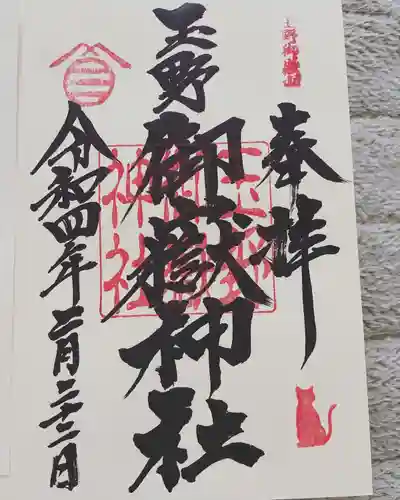 奉拝
玉野御嶽神社
令和四年二月二十二日
玉野御嶽神社